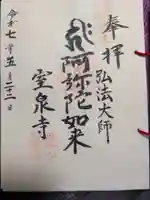 奉拝
弘法大師
阿弥陀如来
室泉寺
令和七年五月二十二日